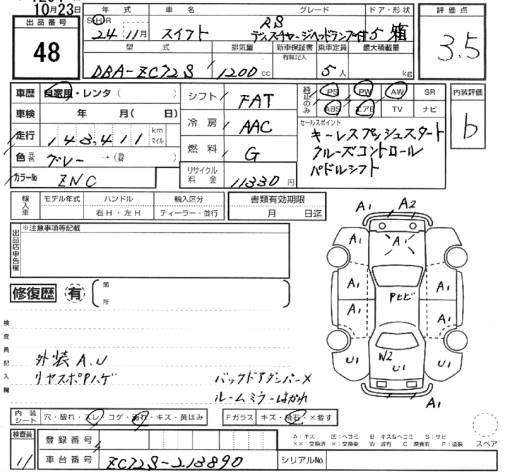 10月23日
出品番号
48
年式 車名 グレード ドア・形状
S・H・R 24年11月 スイフト RS ディスチャージヘッドランプ付 5 箱
型式 排気量 新車保証書 乗車定員 最大積載量
有無記入
DBA-ZC72S 1200cc 5人 kg
評価点
3.5
車歴 自家用・レンタ( )
車検 年 月( 日)
走行 143,411 km マイル
色 グレー→( )
カラーNo ZNC
シフト FAT
冷房 AAC
燃料 G
リサイクル料金 11330円
純正のみ
PS PW AW SR
ABS エアB TV ナビ
セールスポイント
キーレスプッシュスタート
クルーズコントロール
パドルシフト
内装評価
b
輸入車 モデル年式 ハンドル 輸入区分
右H・左H ディーラー・並行
書類有効期限
月 日迄
出品店申告欄
※注意事項等記載
修復歴 有 箇所
検査員記入欄
外装A.U
リヤスポPハゲ
バックドアダンパー×
ルームミラーはがれ
A1 A2
A1 A1 A1
A1 A1
A1 PセビA1
U1 W2 U1
内装シート 穴・破れ・スレ・コゲ・汚れ・キズ・黄ばみ
Fガラス キズ・飛石・×要す
検査員
11
登録番号
車台番号 ZC72S-213890
シリアルNo.
A:キズ E:ヘコミ B:キズ&ヘコミ S:サビ
××:交換済 ×:交換要 W:波有 C:腐食有 P:塗装
スペア